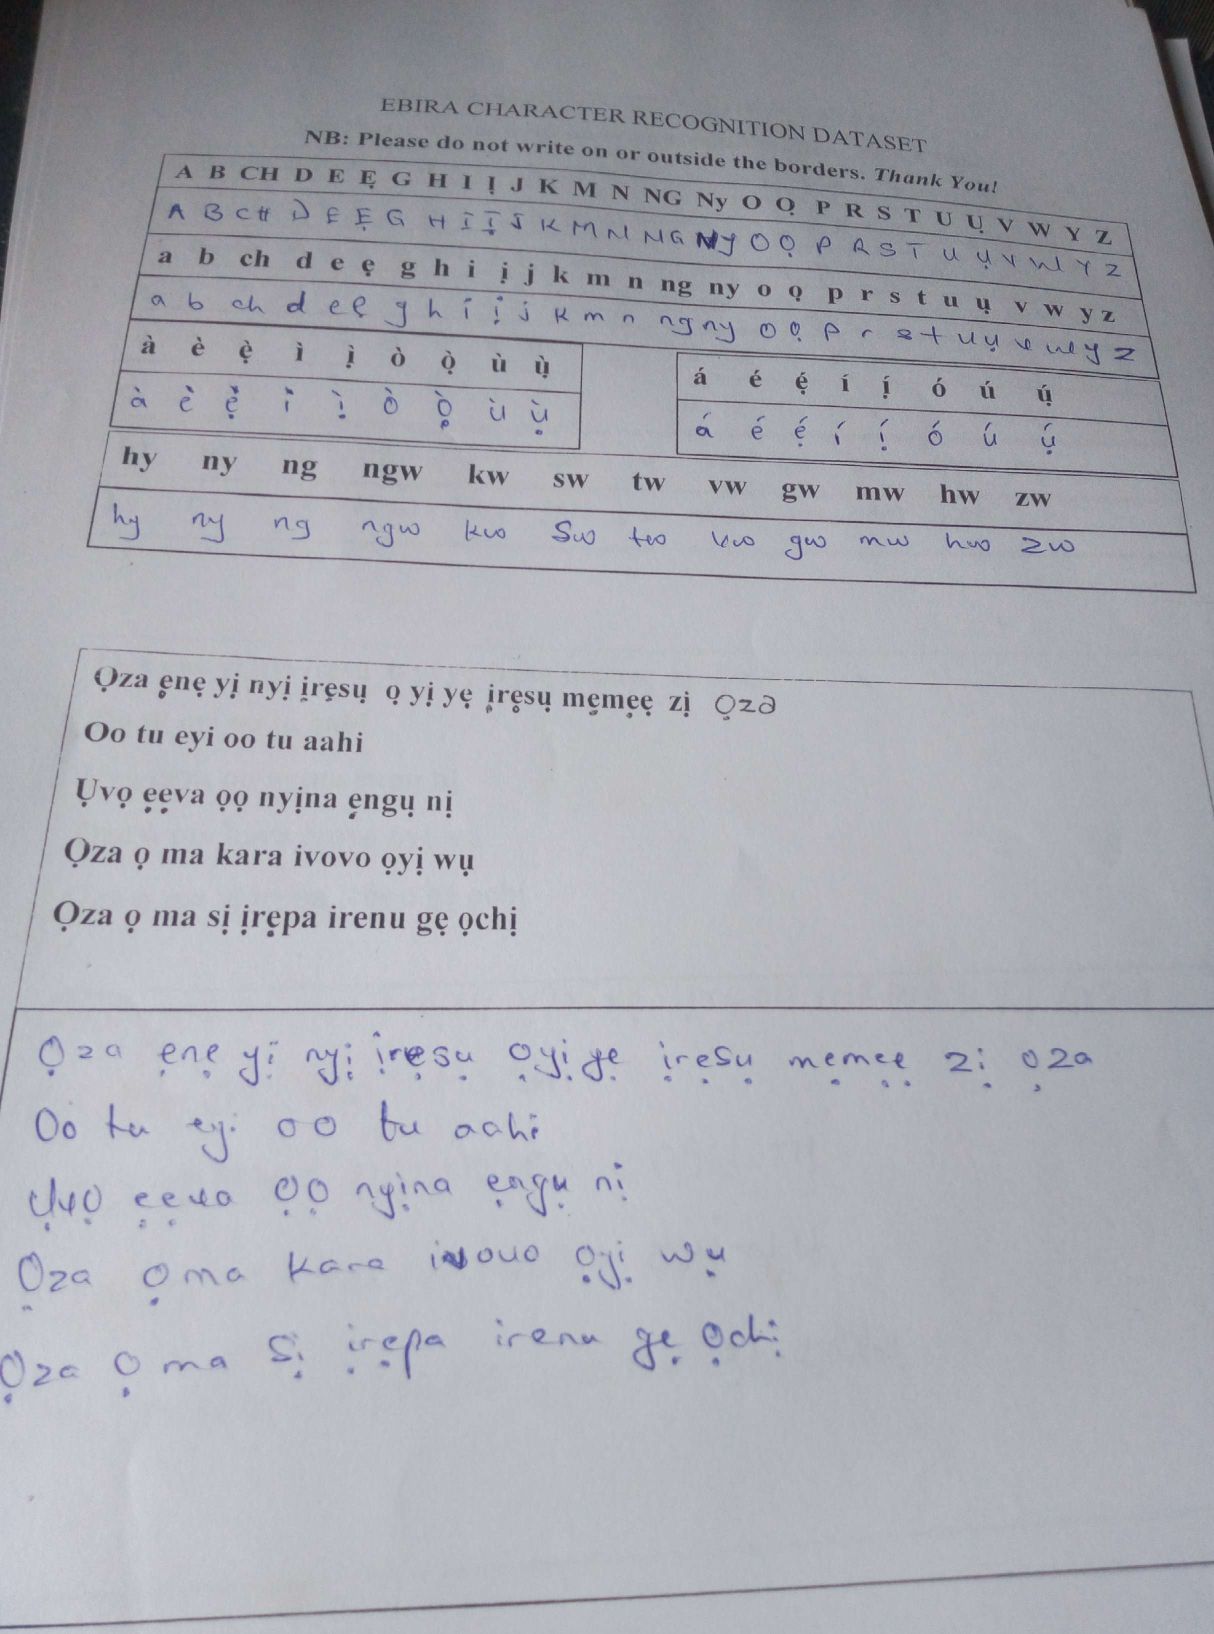 EBIRA CHARACTER RECOGNITION DATASET
NB: Please do not write on or outside the borders. Thank You!
A B CH D E Ẹ G H I Ị J K M N NG Ny O Ọ P R S T U Ụ V W Y Z
A B CH D E Ẹ G H I Ị J K M N NG NY O Ọ P R S T U Ụ V W Y Z
a b ch d e ẹ g h i ị j k m n ng ny o ọ p r s t u ụ v w y z
a b ch d e ẹ g h i ị j k m n ng ny o ọ p r s t u ụ v w y z
à è ẹ̀ ì ị̀ ò ọ̀ ù ụ̀
à è ẹ̀ ì ị̀ ò ọ̀ ù ụ̀
á é ẹ́ í ị́ ó ú ụ́
á é ẹ́ í ị́ ó ú ụ́
hy ny ng ngw kw sw tw vw gw mw hw zw
hy ny ng ngw kw Sw tw vw gw mw hw zw
Ọza ẹnẹ yị nyị ịrẹsụ ọ yị yẹ ịrẹsụ mẹmẹẹ zị ọza
Oo tu eyi oo tu aahi
Ụvọ ẹẹva ọọ nyịna ẹngụ nị
Ọza ọ ma kara ivovo ọyị wụ
Ọza ọ ma sị ịrẹpa irenu gẹ ọchị
Ọza ẹnẹ yị nyị ịrẹsụ ọyị yẹ ịrẹsụ mẹmẹẹ zị ọza
Oo tu eyi oo tu aahi
Ụvọ ẹẹva ọọ nyịna ẹngụ nị
Ọza ọ ma kara ivovo ọyị wụ
Ọza ọ ma sị ịrẹpa irenu gẹ ọchị